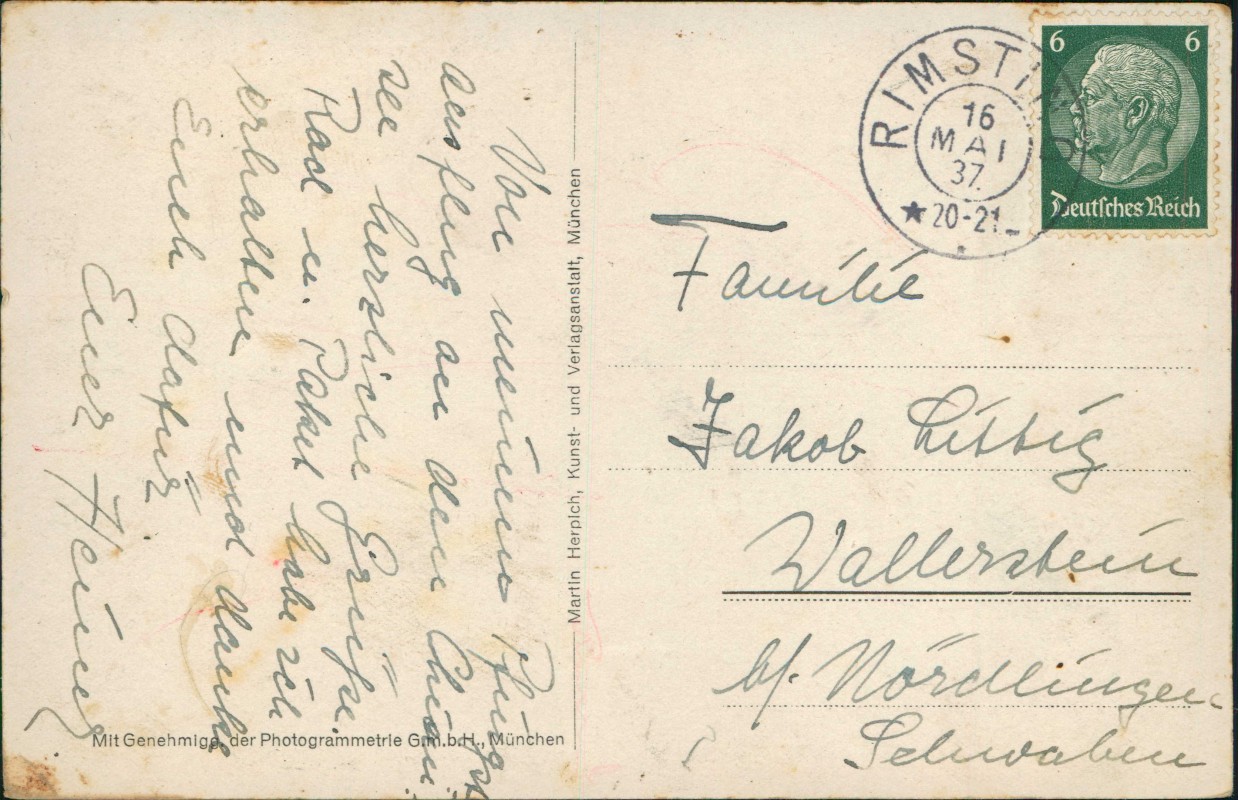 Von meinem Pfingst-
ausflug an den Chiem-
see herzliche Grüße.
Rad u. Paket habe ich
erhalten und danke
Euch dafür
Euer Heiner
Martin Herpich, Kunst- und Verlagsanstalt, München
Mit Genehmigg. der Photogrammetrie G.m.b.H., München
RIMSTI
16
MAI
37.
20-21
6 6
Deutsches Reich
Familie
Jakob Littig
Wallerstein
bf. Nördlingen
Schwaben